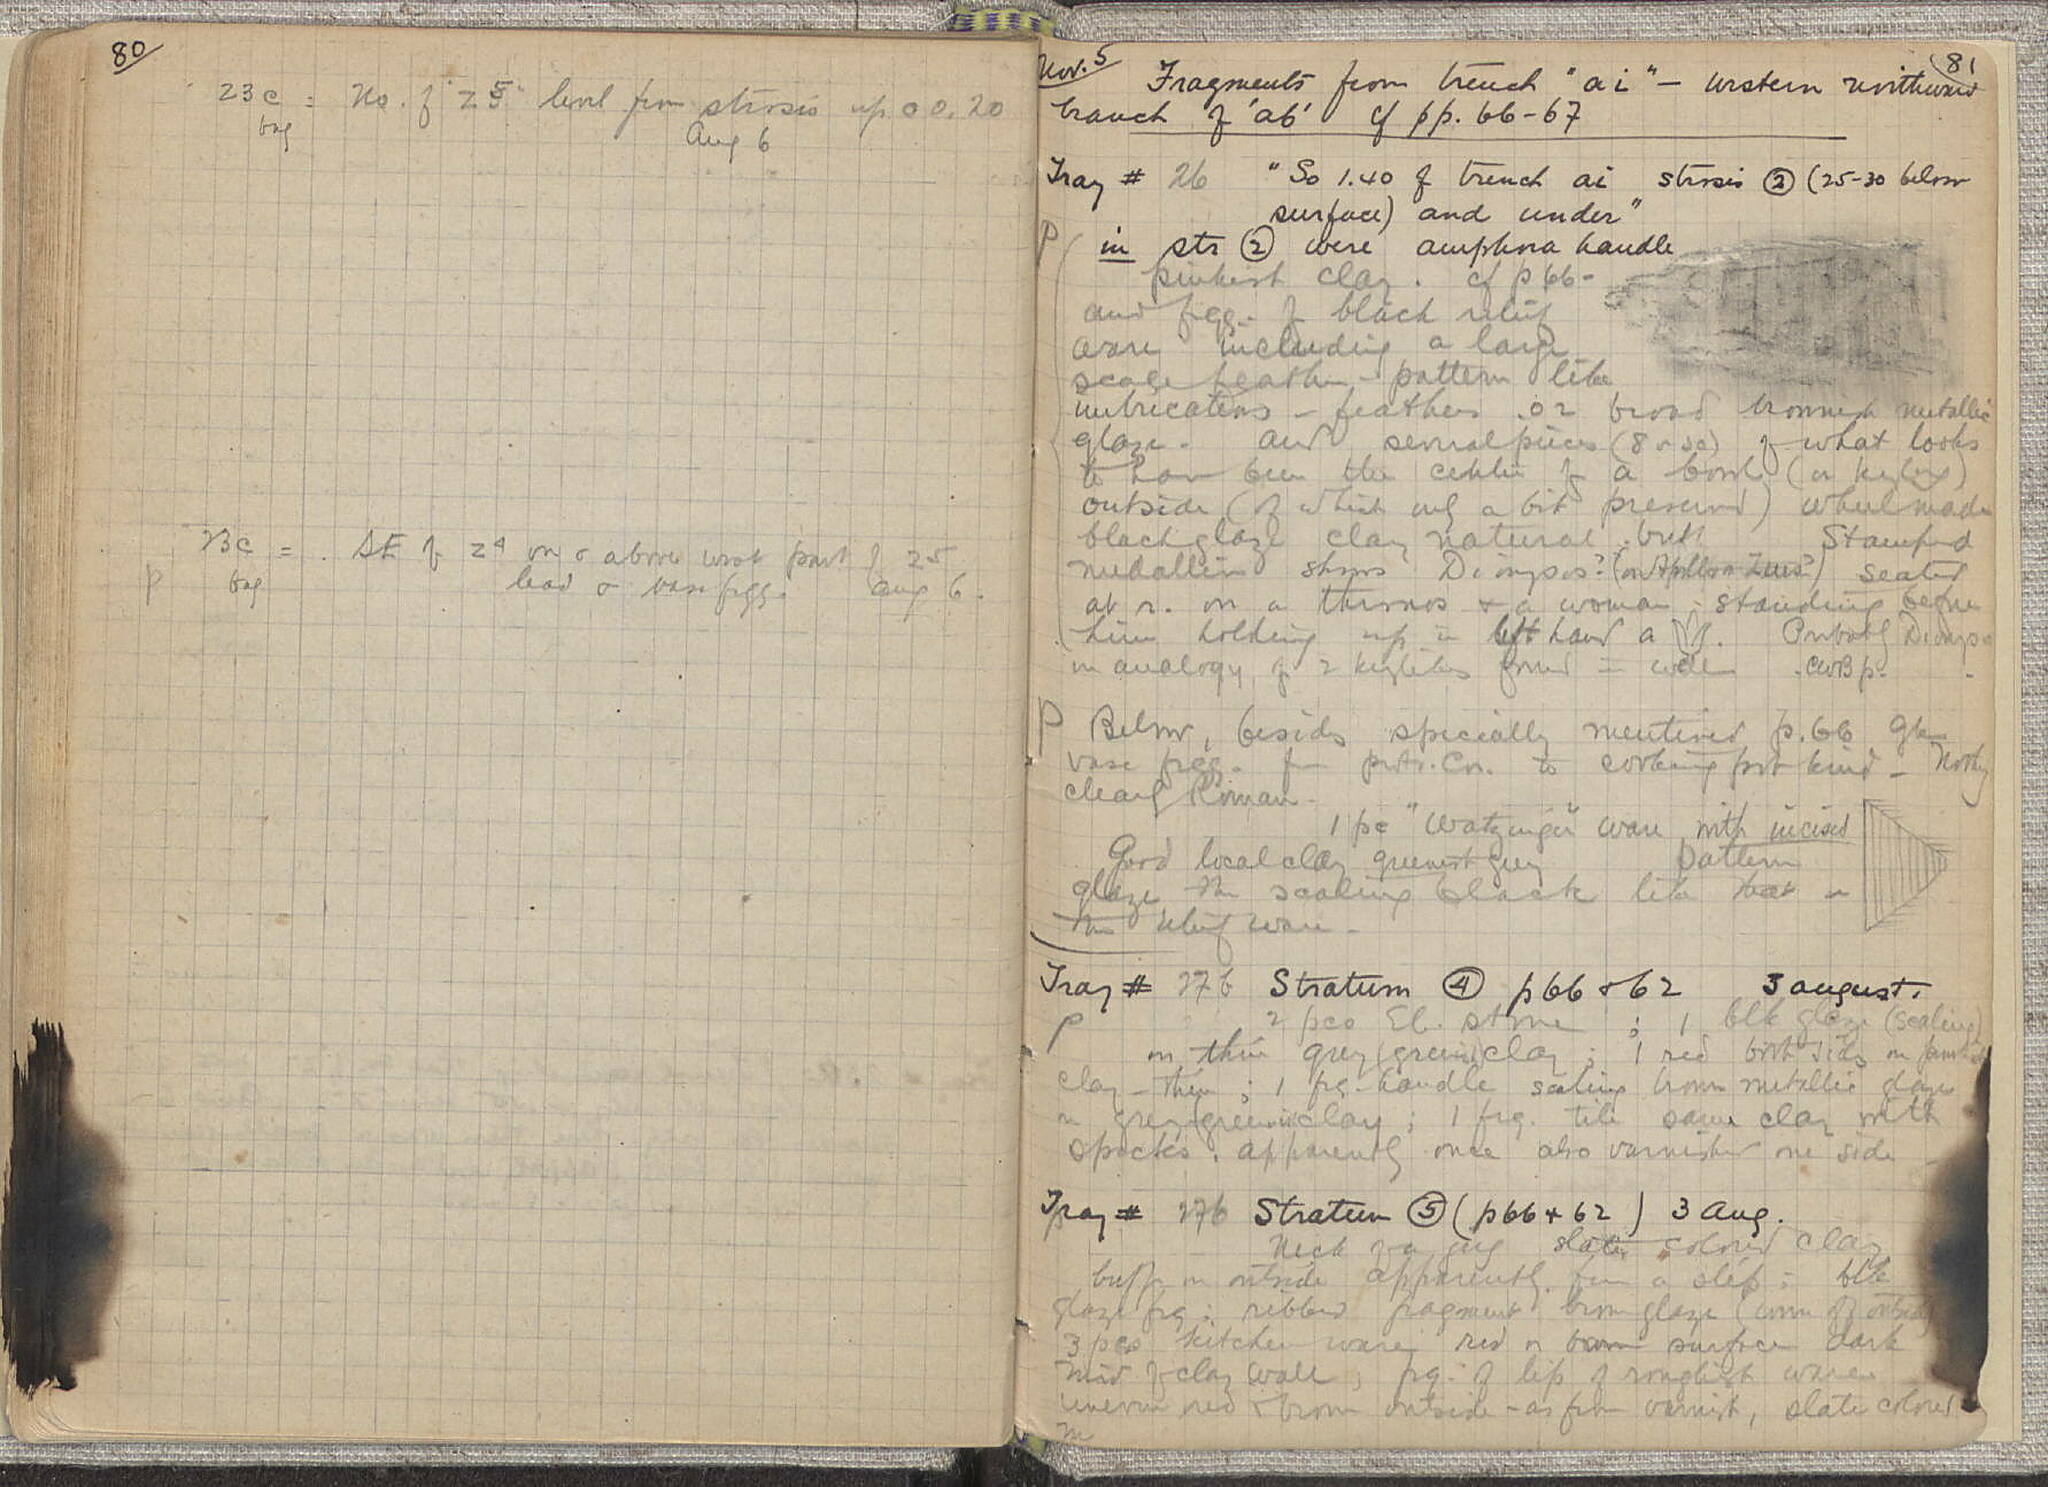 80
23c = No. of "Z5" level from strosis up 0.20
bag Aug 6
23c = . SE of Z4 on & above west part of Z5
P bag lead & vase frgg. Aug 6.
Nov. 5 81
Fragments from trench "ai" – western northward
branch of 'ab' cf pp. 66-67
Tray # 26 "So 1.40 of trench ai strosis ② (25-30 below
surface) and under"
P in str ② were amphora handle
pinkish clay. cf p 66-
and frgg. of black relief
ware including a large
scale feather-pattern like
imbrications – feathers broad brownish metallic
glaze. and several pieces (8 or so) of what looks
to have been the center of a bowl (or kylix)
outside (of which only a bit preserved) wheelmade
black glaze clay natural buff Stamped
medallion shows Dionysos? (or Apollo or Zeus?) seated
at r. on a thronos & a woman standing before
him holding up in left hand a . Probably Dionysos
in analogy of 2 kylikes found in well . CWB p. .
P Below, besides specially mentioned p. 66
vase frgg. fr proto-Cor. to cooking pot kind – Nothing
clearly Roman.
1 pc "Watzinger" ware with incised
Good local clay greenish grey pattern
glaze the scaling black like that in
the relief ware –
Tray # 27b Stratum ④ p 66 & 62 3 august.
P 2 pcs stone ; 1 blk glaze (scaling)
on thin grey (green) clay ; 1 red both sides on
clay – thin ; 1 frg. handle scaling brown metallic glaze
in grey (green) clay ; 1 frg. tile same clay with
specks. apparently once also varnished one side –
Tray # 27b Stratum ⑤ (p 66 + 62) 3 Aug.
P Neck of a jug slate colored clay
buff on outside apparently from a slip : blk
glaze frg ; ribbed fragment brown glaze (worn off outside)
3 pcs kitchen ware red or brown surface dark
mid of clay wall ; frg. of lip of roughish ware
uneven red & brown outside – as from varnish, slate colored
in